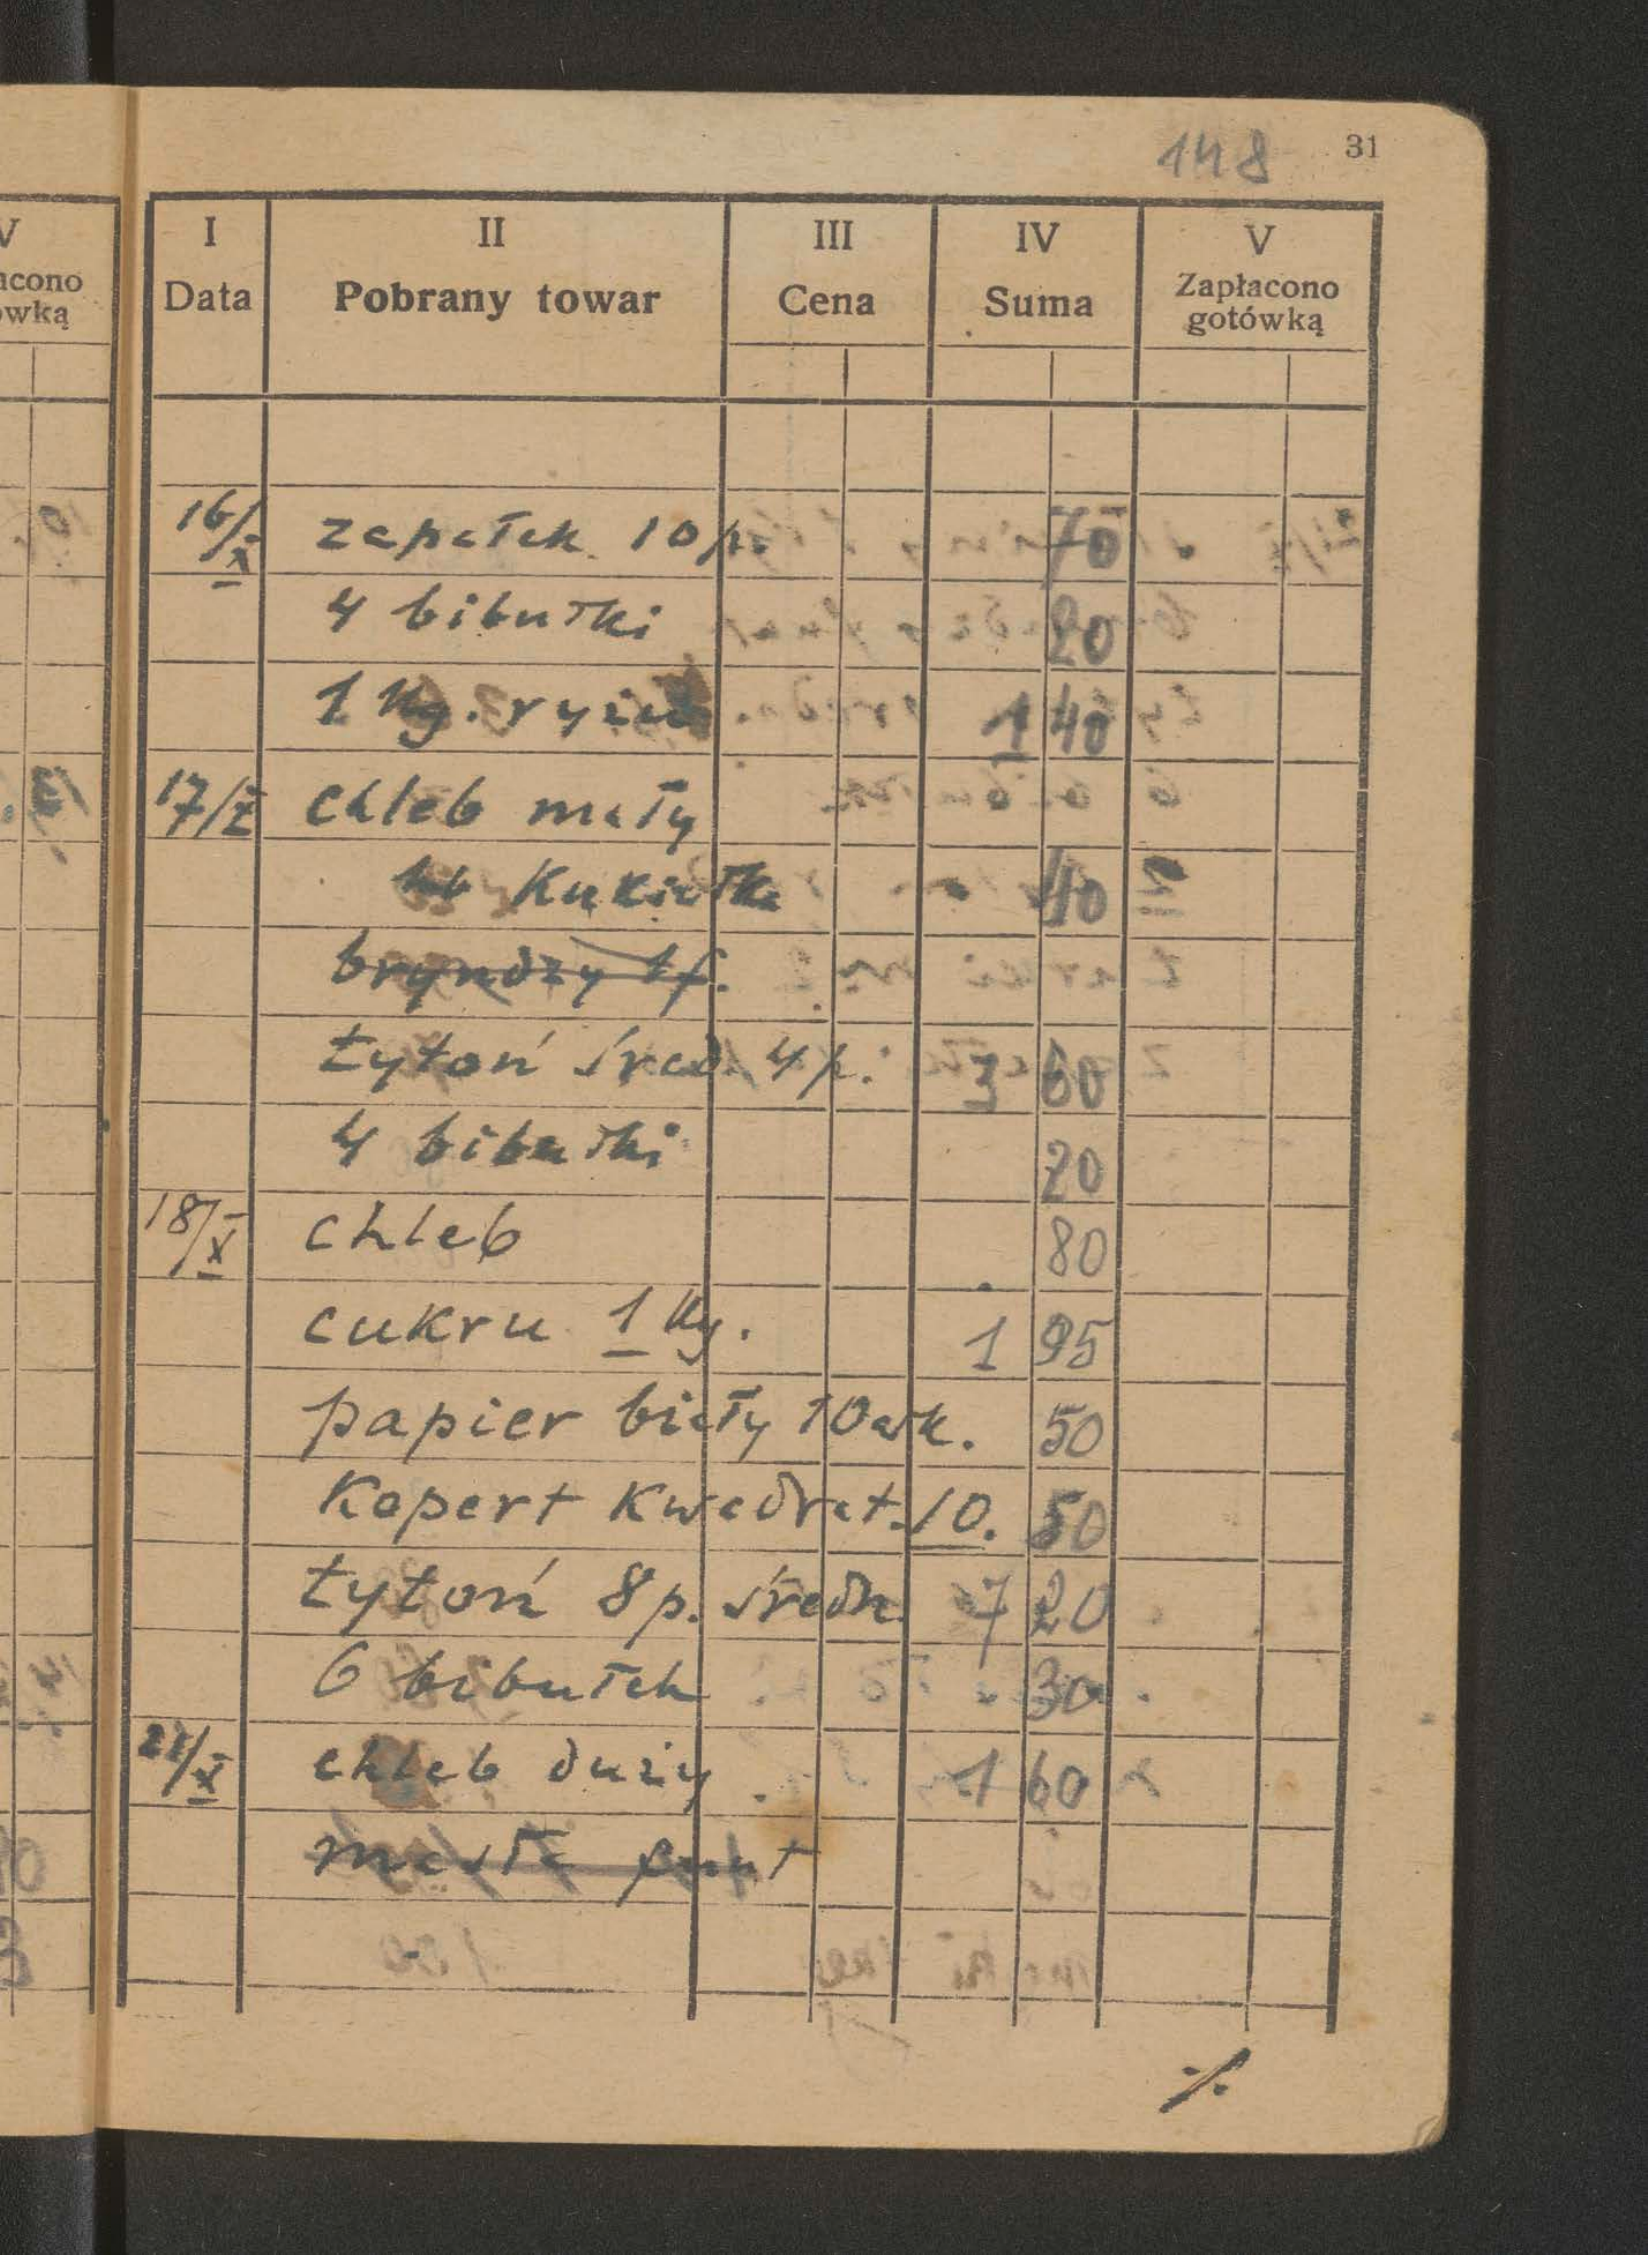 148 31
I II III IV V
Data Pobrany towar Cena Suma Zapłacono gotówką
16/X zapałek 10 p. 70
4 bibułki 20
1 kg. ryżu 1 40
17/X chleb mały
kukiełka 40
bryndzy 1 f.
tytoń śred. 4 p. 3 60
4 bibułki 20
18/X chleb 80
cukru 1 kg. 1 95
papier biały 10 ark. 50
Kopert kwadrat. 10. 50
tytoń 8 p. średn. 7 20
6 bibułek 30
21/X chleb duży 1 60
masła funt
./.